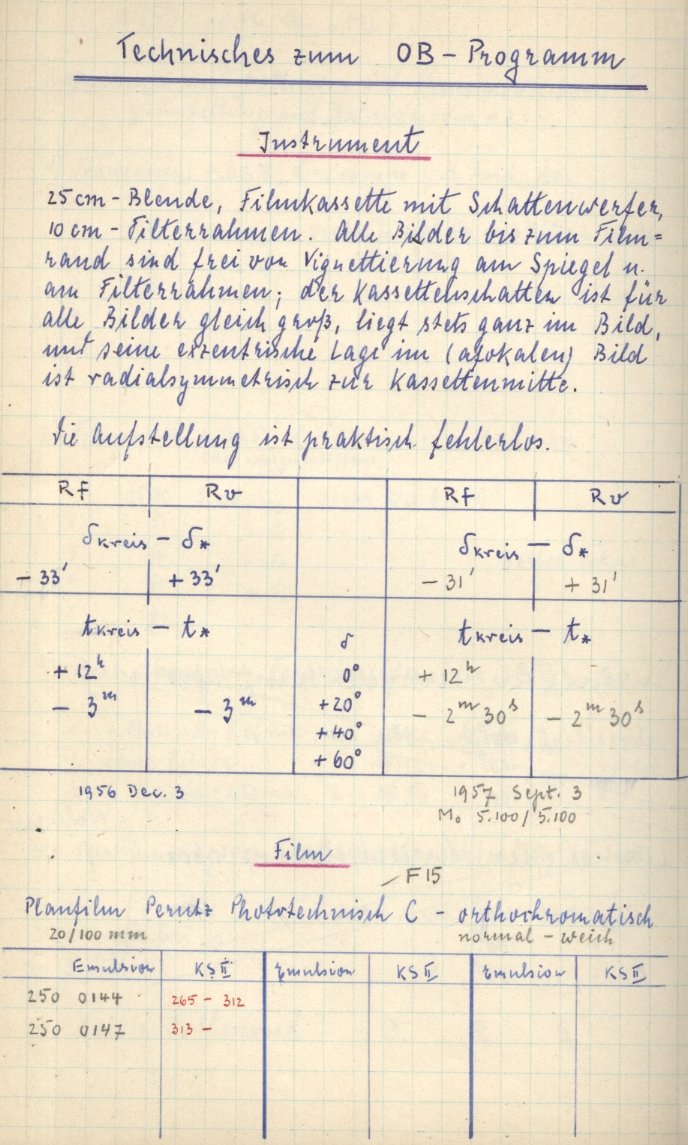 Technisches zum OB-Programm
Instrument
25 cm - Blende, Filmkassette mit Schattenwerfer,
10 cm - Filterrahmen. Alle Bilder bis zum Film=
rand sind frei von Vignettierung am Spiegel u.
am Filterrahmen; der Kassettenschatten ist für
alle Bilder gleich groß, liegt stets ganz im Bild,
und seine exzentrische Lage im (afokalen) Bild
ist radialsymmetrisch zur Kassettenmitte.
Die Aufstellung ist praktisch fehlerlos.
Rf Rv Rf Rv
δkreis - δ* δkreis - δ*
- 33' + 33' - 31' + 31'
tkreis - t* δ tkreis - t*
+ 12h 0° + 12h
- 3m - 3m +20° - 2m 30s - 2m 30s
+40°
+60°
1956 Dez. 3 1957 Sept. 3
Mo 5.100/5.100
Film
F15
Planfilm Perutz Phototechnisch C - orthochromatisch
20/100 mm normal - weich
Emulsion KS II Emulsion KS II Emulsion KS II
250 0144 265 - 312
250 0147 313 -